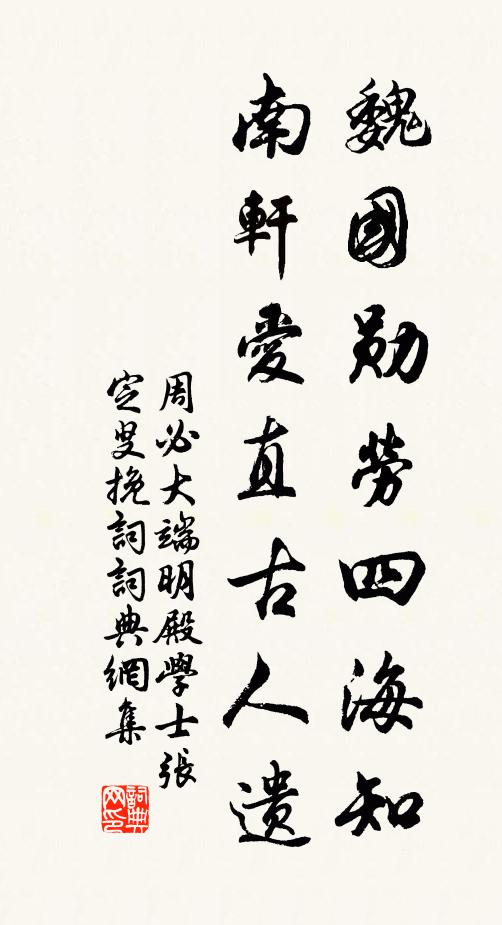 魏國勛勞四海知
南軒愛直古人遺
周必大端明殿學士張
定叟挽詞詞典網集
詞典网印